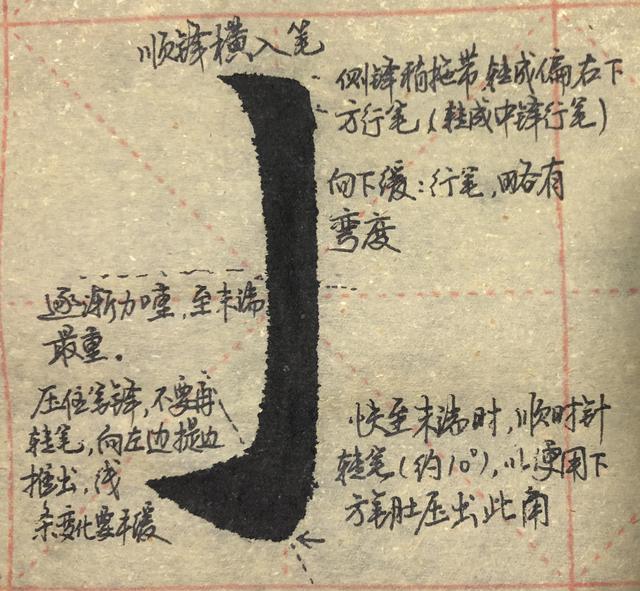 顺锋横入笔
侧锋稍拖带,转成偏右下
方行笔(转成中锋行笔)
向下缓:行笔,略有
弯度
逐渐加重,至末端
最重。
压住笔锋,不要再
转笔,向左边提边
推出,线
条变化要平缓
快至末端时,顺时针
转笔(约10°),以便用下
方笔肚压出此角